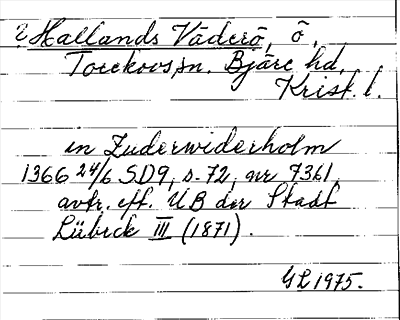 ? Hallands Väderö, ö,
Torekovs sn. Bjäre hd.
Krist. l.
in Zuderwederholm
1366 24/6 SD9, s. 72, nr 7361,
avtr. eft. UB der Stadt
Lübeck III (1871).
GL 1975.